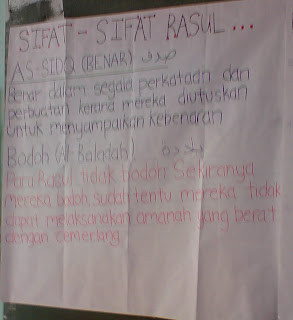 SIFAT - SIFAT RASUL ...
AS-SIDQ (BENAR) صدق
Benar dalam segala perkataan dan
perbuatan kerana mereka diutuskan
untuk menyampaikan kebenaran
Bodoh (Al-Baladah) بلاده
Para Rasul tidak bodoh. Sekiranya
mereka bodoh sudah tentu mereka tidak
dapat melaksanakan amanah yang berat
dengan cemerlang